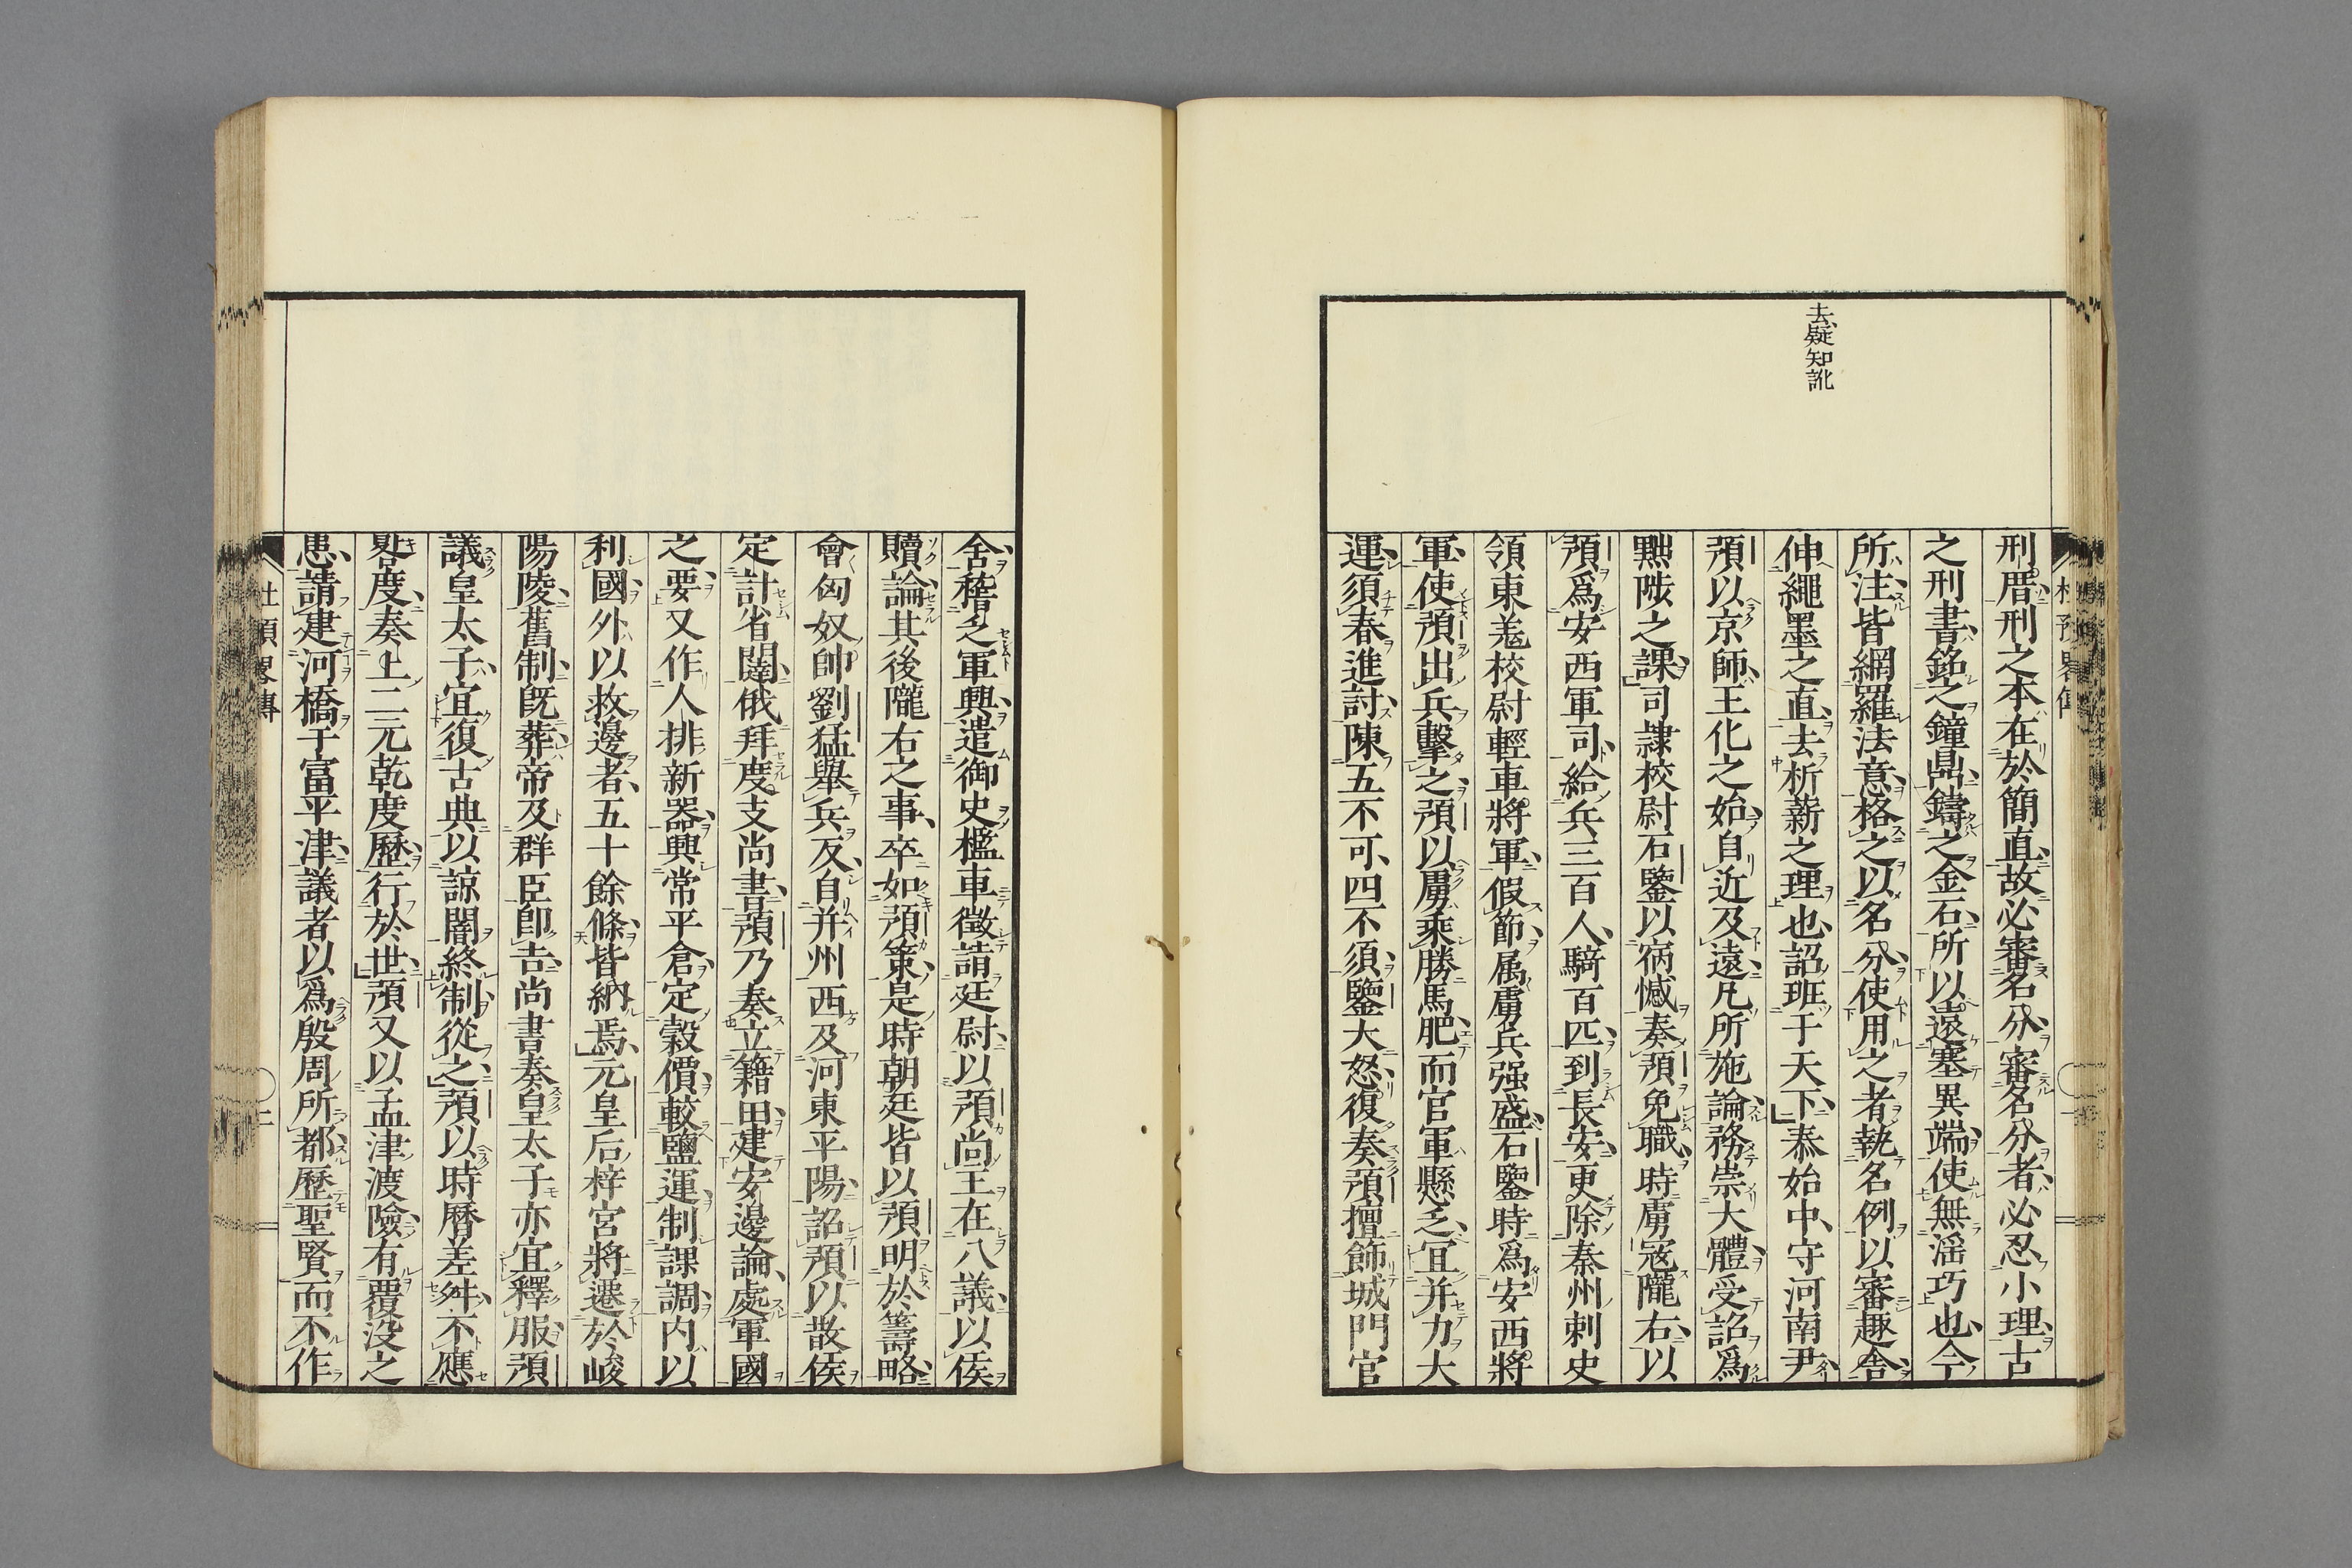 去疑知訛
刑厝刑之本在於簡直故必審名分審名分者必忍小理古
之刑書銘之鐘鼎鑄之金石所以遠塞異端使無淫巧也今
所注皆網羅法意格之以名分使用之者執名例以審趣舍
伸繩墨之直去析薪之理也詔班于天下泰始中守河南尹
預以京師王化之始自近及遠凡所施論務崇大體受詔爲
黜陟之課司隷校尉石鑒以宿憾奏預免職時虜寇隴右以
預爲安西軍司給兵三百人騎百匹到長安更除秦州刺史
領東羗校尉輕車將軍假節属虜兵强盛石鑒時爲安西將
軍使預出兵擊之預以虜乘勝馬肥而官軍懸乏宜并力大
運須春進討陳五不可四不須鑒大怒復奏預擅飾城門官
杜預畧傳
舍稽乏軍興遣御史檻車徵詣廷尉以預尚主在八議以侯
贖論其後隴右之事卒如預策是時朝廷皆以預明於籌略
會匈奴帥劉猛舉兵反自并州西及河東平陽詔預以散侯
定計省闥俄拜度支尚書預乃奏立籍田建安邊論處軍國
之要又作人排新器興常平倉定穀價較鹽運制課調内以
利國外以救邊者五十餘條皆納焉元皇后梓宮將遷於峻
陽陵舊制既葬帝及群臣卽吉尚書奏皇太子亦宜釋服預
議皇太子宜復古典以諒闇終制從之預以時曆差舛不應
晷度奏上二元乾度歷行於世預又以孟津渡險有覆没之
患請建河橋于富平津議者以爲殷周所都歷聖賢而不作
杜預畧傳
二